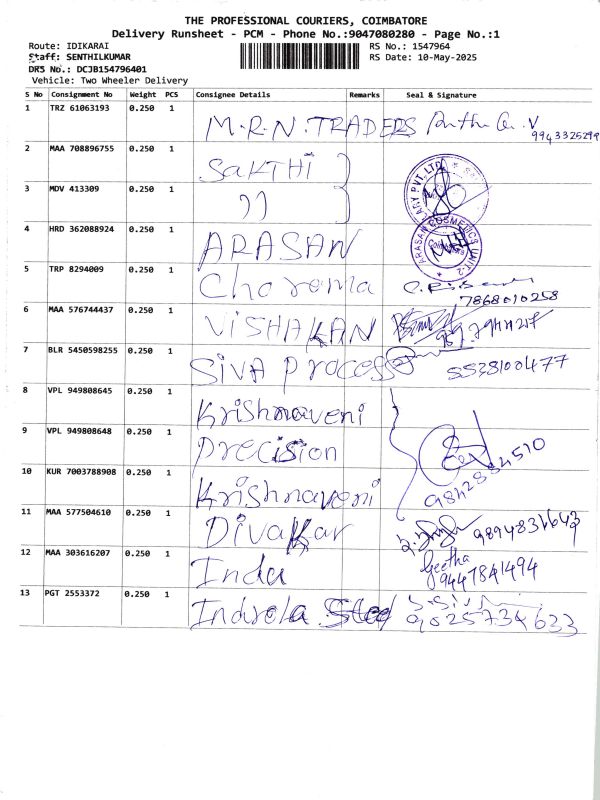 THE PROFESSIONAL COURIERS, COIMBATORE
Delivery Runsheet - PCM - Phone No.:9047080280 - Page No.:1
Route: IDIKARAI RS No.: 1547964
Staff: SENTHILKUMAR RS Date: 10-May-2025
DRS No.: DCJB154796401
Vehicle: Two Wheeler Delivery
S No Consignment No Weight PCS Consignee Details Remarks Seal & Signature
1 TRZ 61063193 0.250 1 M.R.N. TRADERS
9943325299
2 MAA 708896755 0.250 1 SAKTHI
3 MDV 413309 0.250 1 ))
4 HRD 362088924 0.250 1 ARASAN ARASAN COSMETICS UNIT-2
5 TRP 8294009 0.250 1 Charoma
7868010258
6 MAA 576744437 0.250 1 VISHAKAN
7 BLR 5450598255 0.250 1 SIVA Process
8 VPL 949808645 0.250 1 Krishnaveni
9 VPL 949808648 0.250 1 Precision
10 KUR 7003788908 0.250 1 Krishnaveni
11 MAA 577504610 0.250 1 Divakar
12 MAA 303616207 0.250 1 Inda Geetha
9447841494
13 PGT 2553372 0.250 1 Steel
9025734633